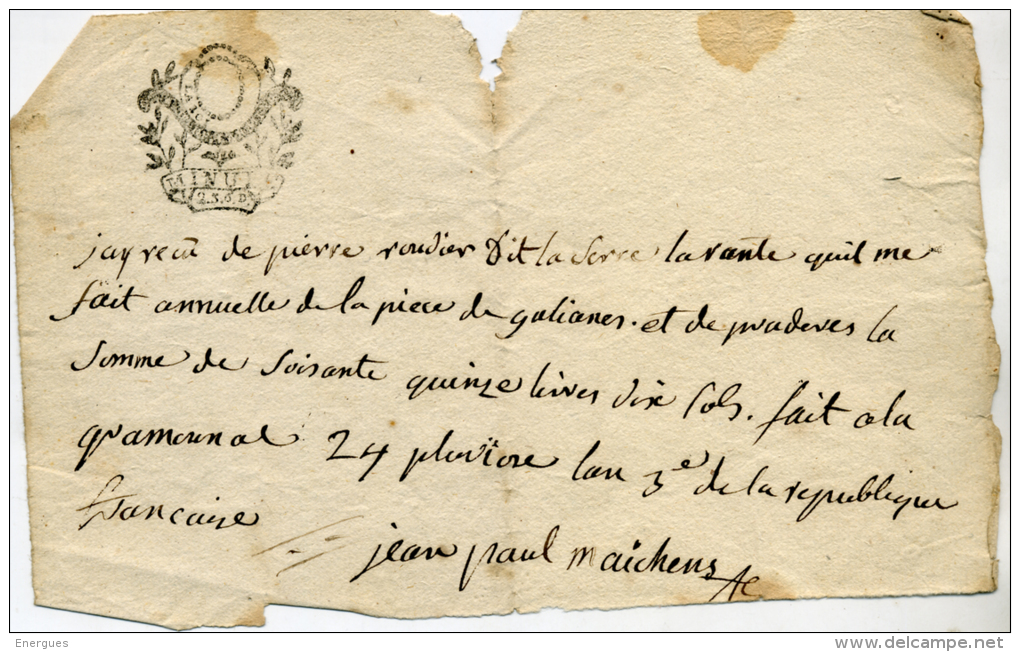 LA LOI
MINUT
2.S.6.D.
jay recu de pierre roudier dit la serre la rante quil me
fait annuelle de la piece de galianes. et de praderes la
somme de soisante quinze livres dix sols. fait a la
24 pluviose lan 3e de la republique
francaise
jean paul maichens
Energues
www.delcampe.net